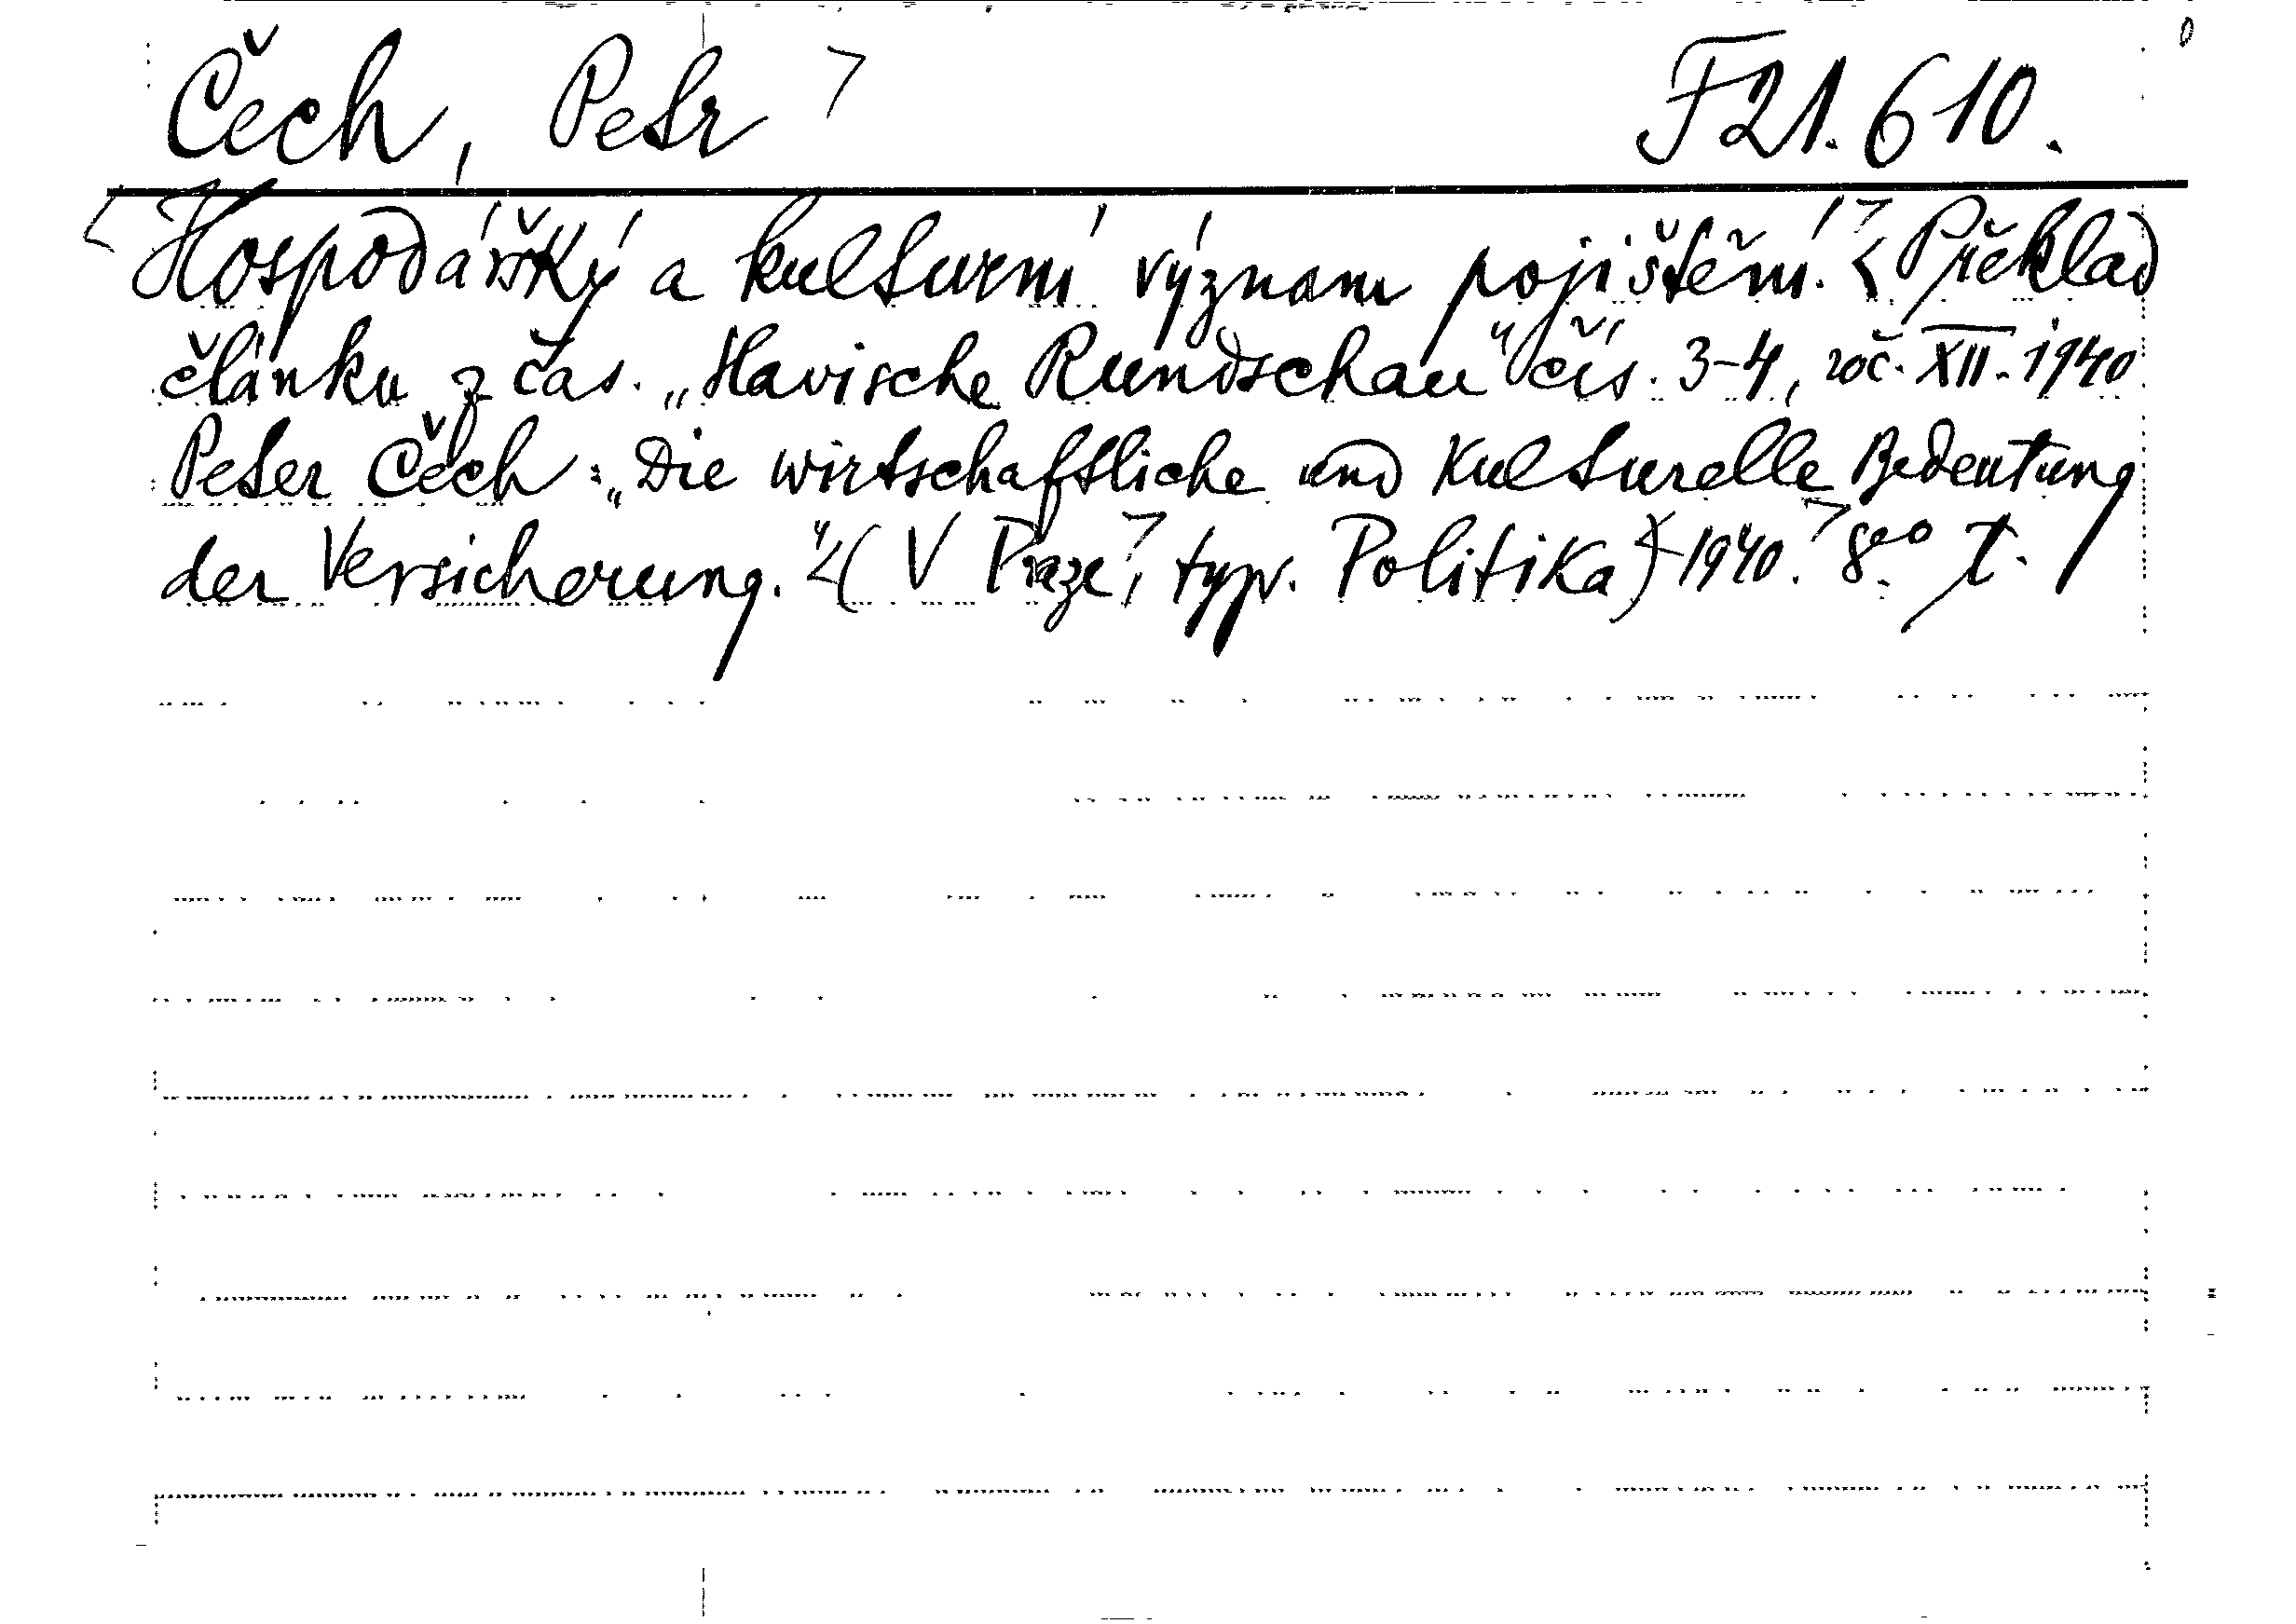 Čech, Petr > F21.610.
<Hospodářský a kulturní význam pojištění.> <Překlad
článku z čas. „Slavische Rundschau“ čís. 3-4, roč. XII. 1940
Peter Čech: „Die wirtschaftliche und kulturelle Bedeutung
der Versicherung.“ <(V Praze>, typ. Politika) 1940.> 8°